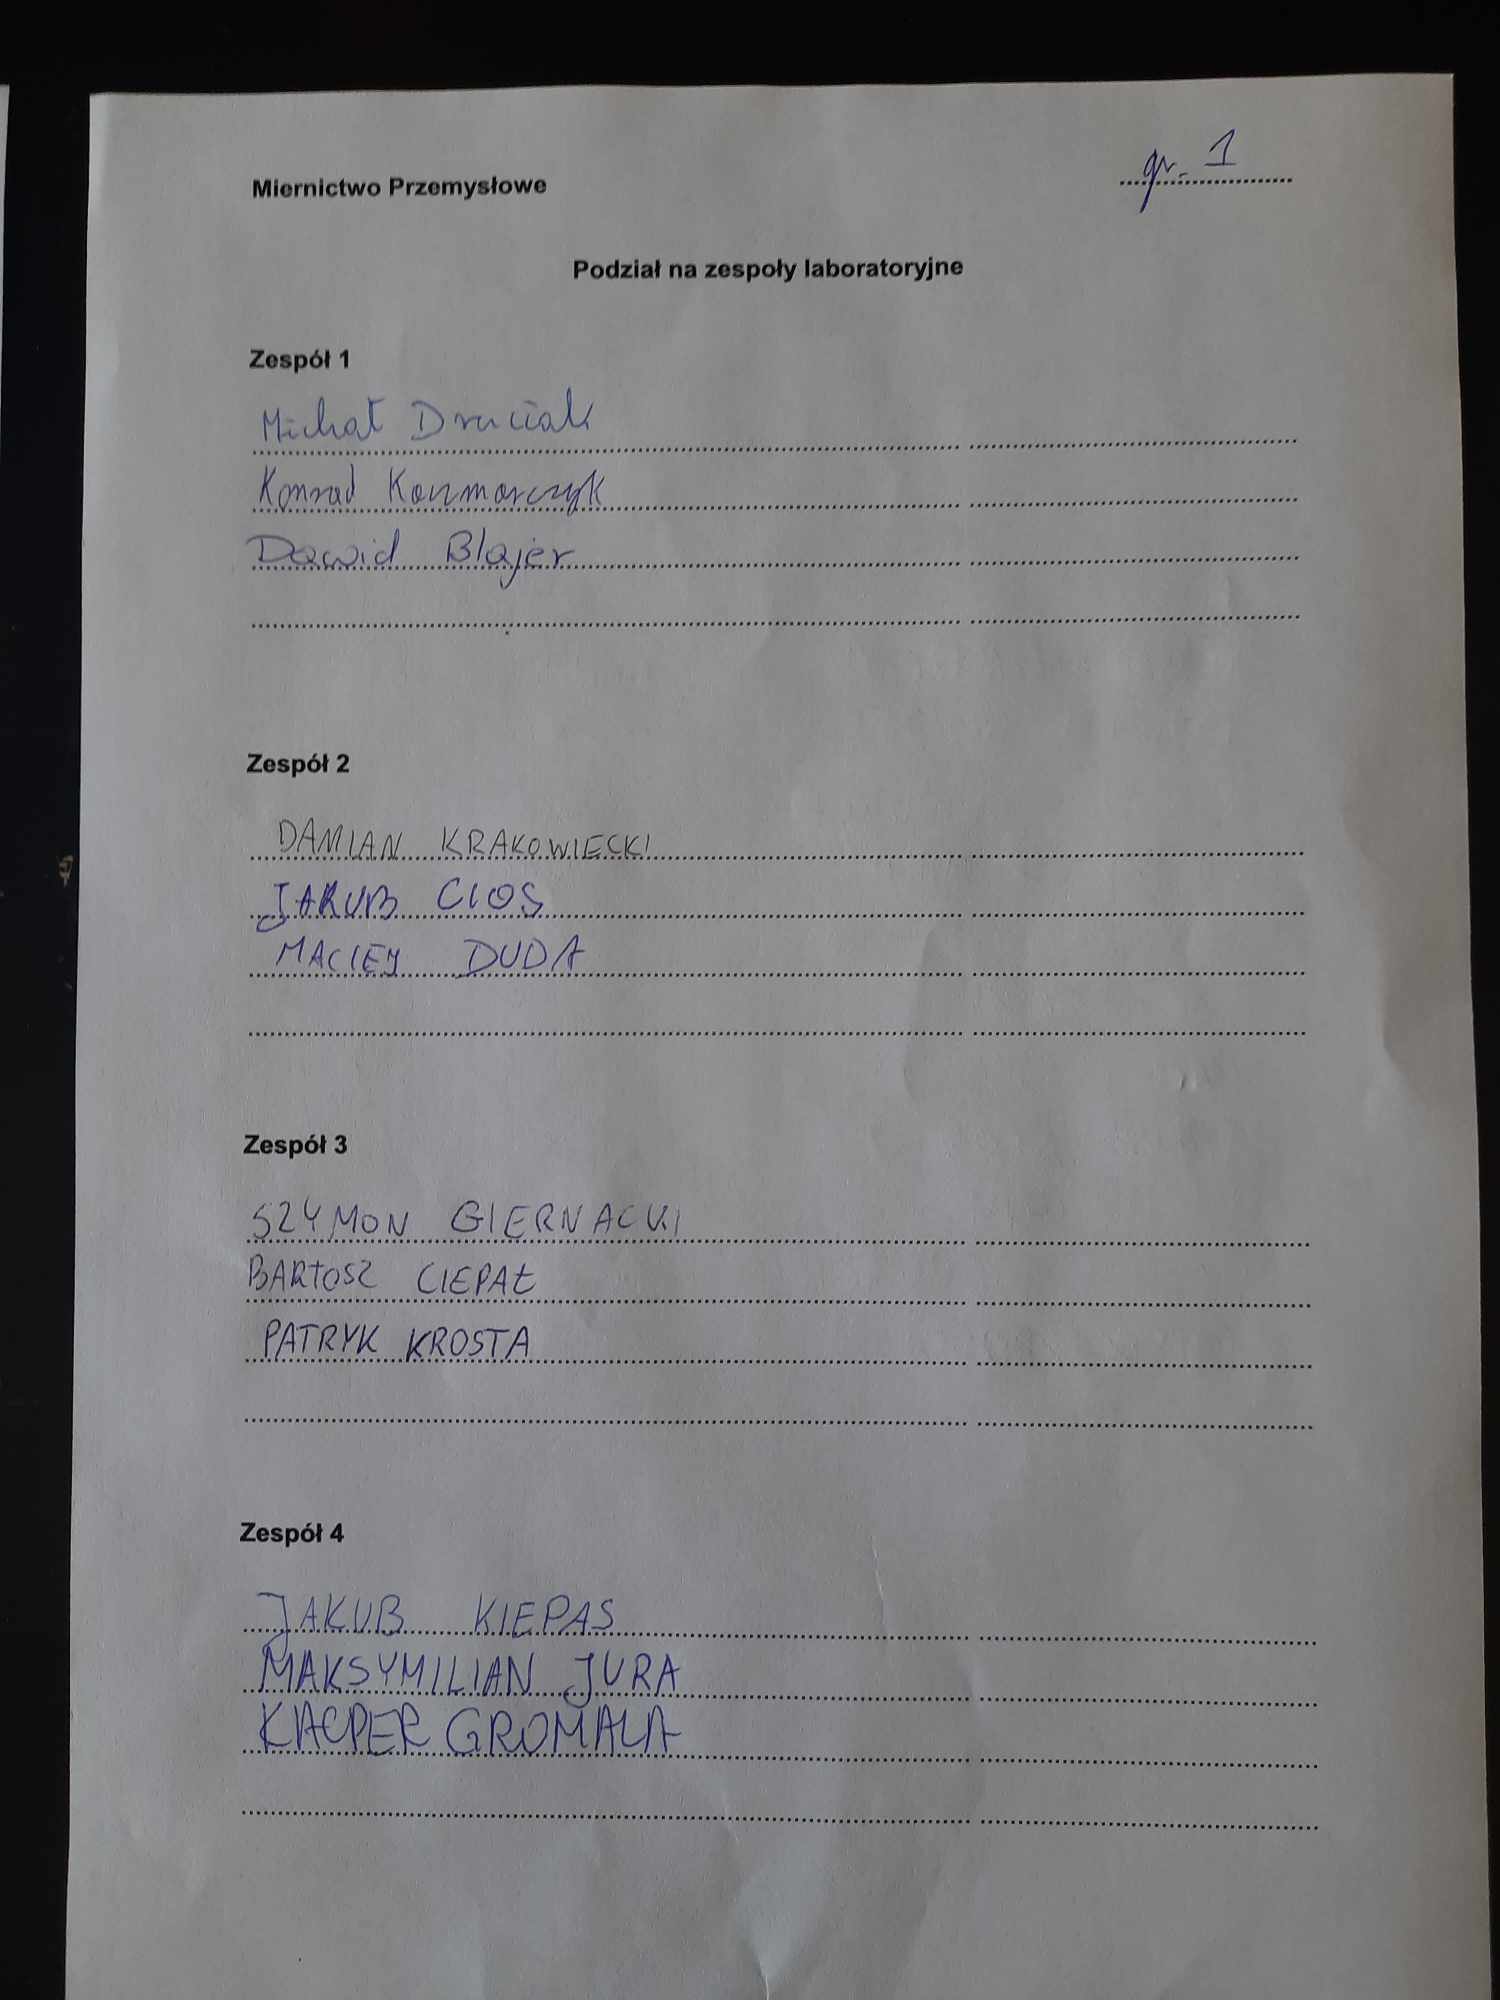 gr. 1
Miernictwo Przemysłowe
Podział na zespoły laboratoryjne
Zespół 1
Michał Druciak
Konrad Kaczmarczyk
Dawid Blajer
Zespół 2
DAMIAN KRAKOWIECKI
JAKUB CIOS
MACIEJ DUDA
Zespół 3
SZYMON GIERNACKI
BARTOSZ CIEPAŁ
PATRYK KROSTA
Zespół 4
JAKUB KIEPAS
MAKSYMILIAN JURA
KACPER GROMALA